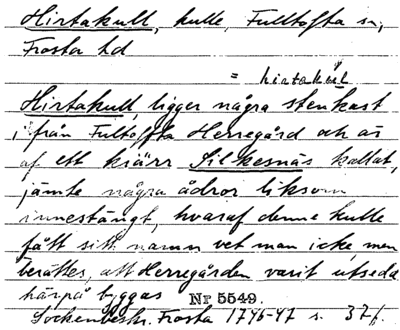 Hirtakull, kulle, Fulltofta sn,
Frosta hd
= hirtakul
Hirtakull, ligger några stenkast
ifrån Fulltofta Herregård och är
af ett kiärr Silkesnäs kallat,
jämte några ådror liksom
innestängt, hvaraf denne kulle
fått sitt namn vet man icke, men
berättes, att Herregården varit utsedd
härpå byggas Nr 5549.
Sockenbeskr. Frosta 1746-47 s. 37f.